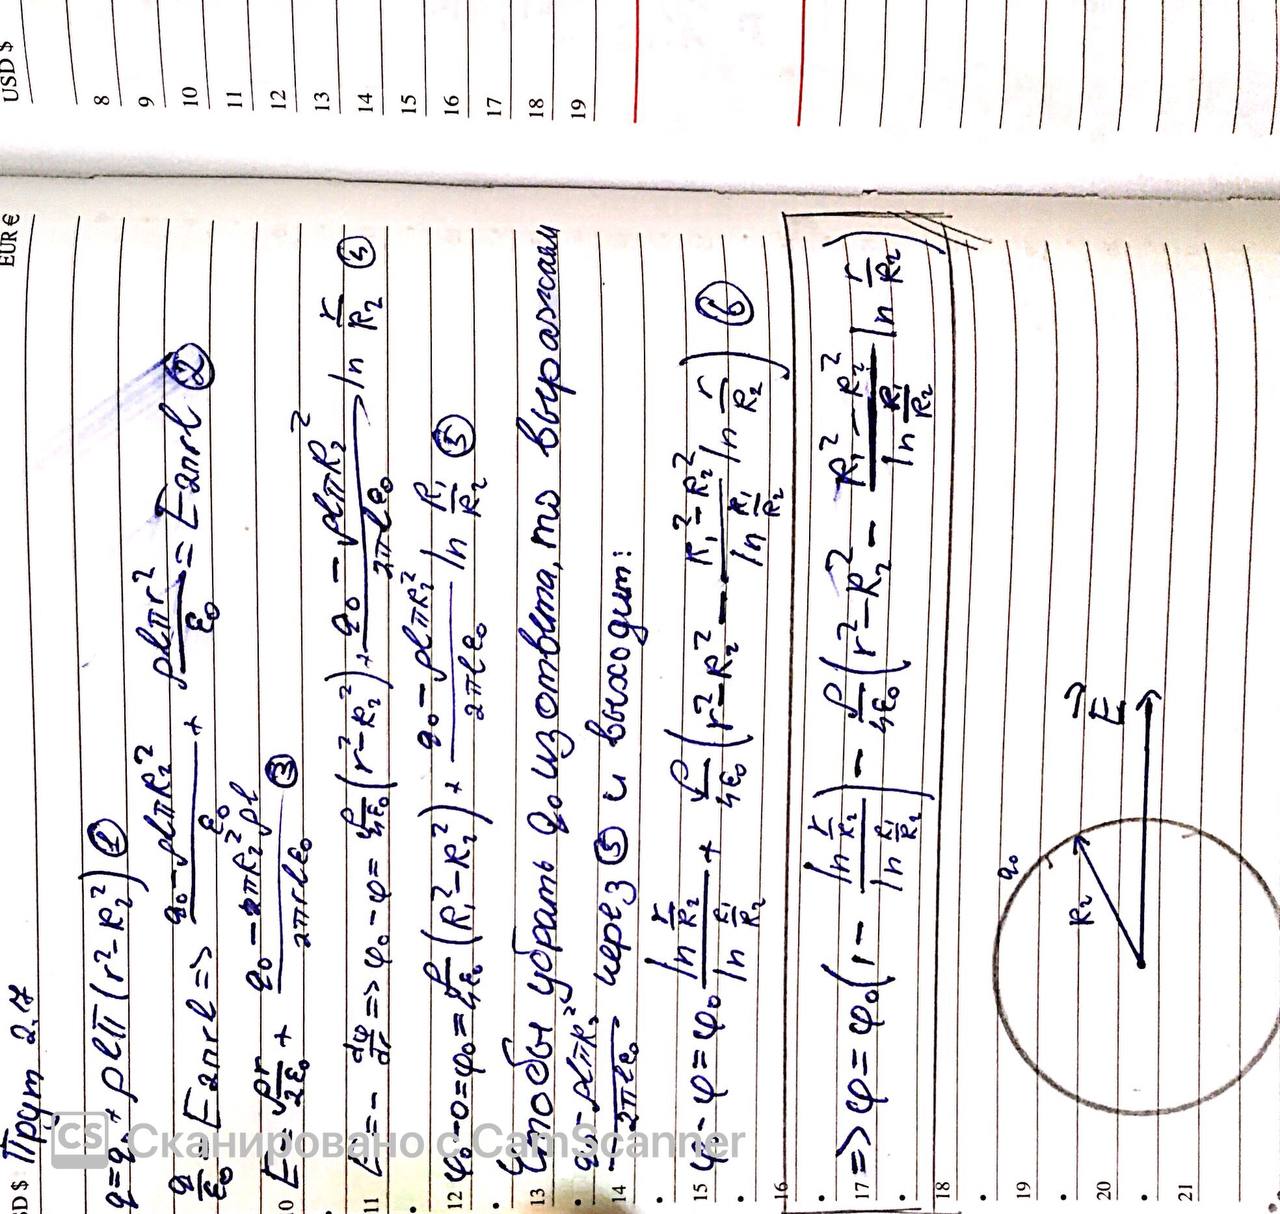 USD $
8
9
10
11
12
13
14
15
16
17
18
19
EUR €
D $ Прут 2.7
q = q₀ + ρlπ(r² - R₂²) ①
q/ε₀ = E2πrl => (q₀ - ρlπR₂²)/ε₀ + ρlπr²/ε₀ = E2πrl ②
10 E = ρr/2ε₀ + (q₀ - πR₂²ρl)/2πrlε₀ ③
11 E = - dφ/dr => φ₀ - φ = ρ/4ε₀ (r² - R₂²) + (q₀ - ρlπR₂²)/2πlε₀ ln r/R₂ ④
12 φ₀ - 0 = φ₀ = ρ/4ε₀ (R₁² - R₂²) + (q₀ - ρlπR₂²)/2πlε₀ ln R₁/R₂ ⑤
13 Чтобы убрать q₀ из ответа, то выражаем
14 (q₀ - ρlπR₂²)/2πlε₀ через ⑤ и выходит:
15 φ₀ - φ = φ₀ (ln r/R₂)/(ln R₁/R₂) + ρ/4ε₀ (r² - R₂² - (R₁² - R₂²)/(ln R₁/R₂) ln r/R₂) ⑥
16
17 => φ = φ₀ (1 - (ln r/R₂)/(ln R₁/R₂)) - ρ/4ε₀ (r² - R₂² - (R₁² - R₂²)/(ln R₁/R₂) ln r/R₂)
18
19
20
21
q₀
R₂
E
CS Сканировано с CamScanner